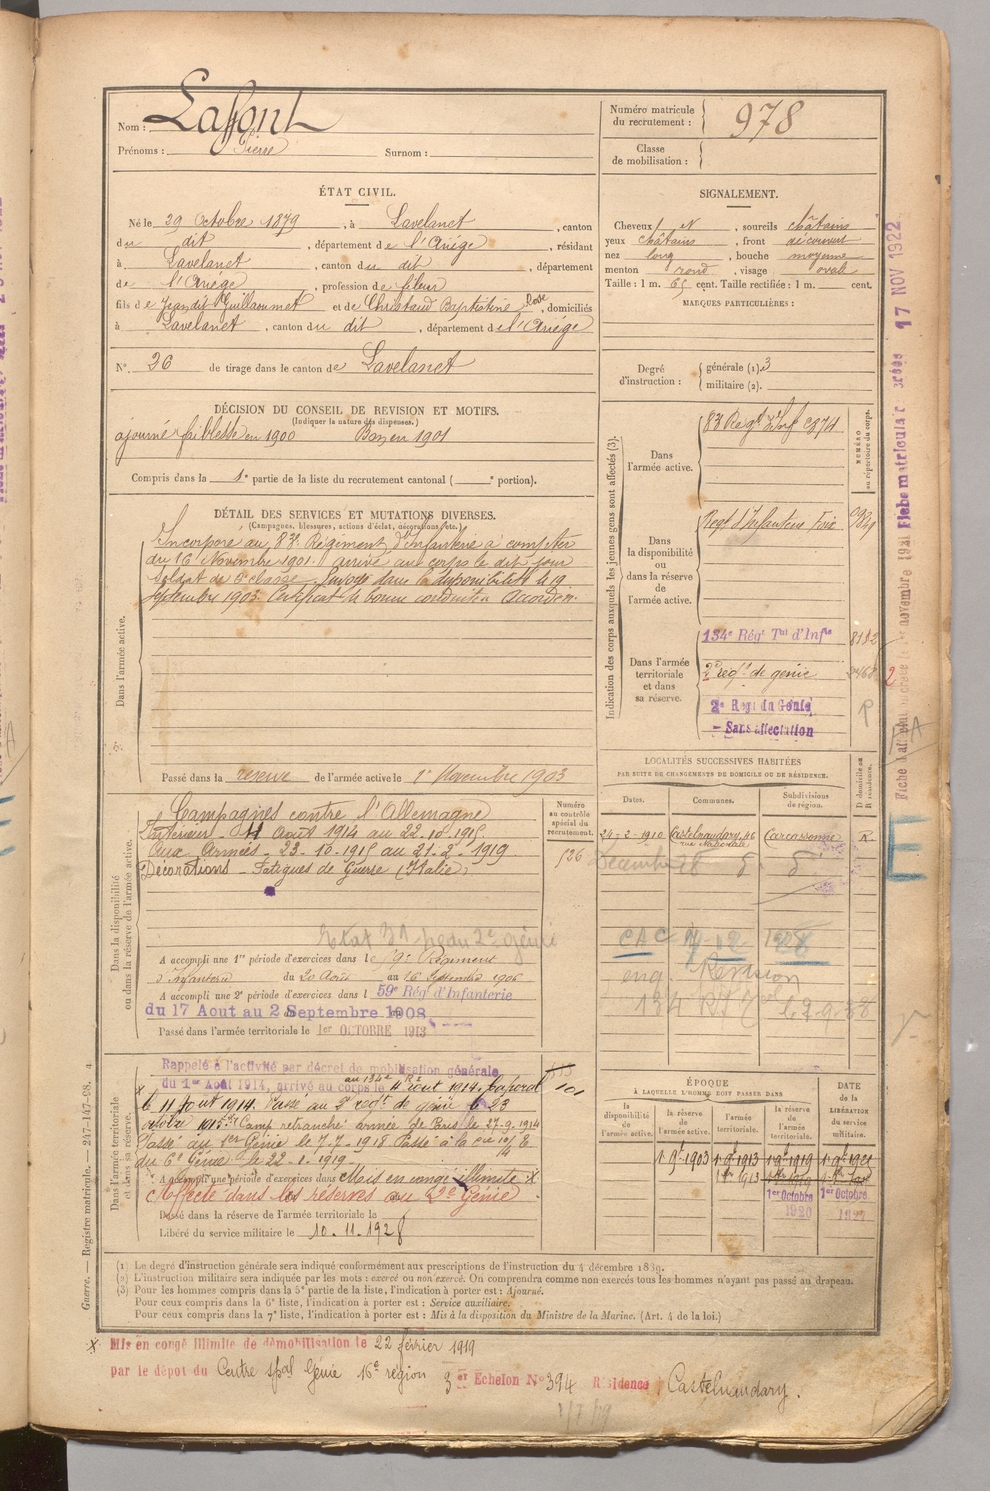 Nom : Laffont
Prénoms : Pierre Surnom :
Numéro matricule du recrutement : 978
Classe de mobilisation :
ÉTAT CIVIL.
Né le 29 Octobre 1879, à Lavelanet, canton
du dit, département de l'Ariège, résidant
à Lavelanet, canton du dit, département
de l'Ariège, profession de fileur
fils de Jean dit Guillaumet et de Christaud Baptistine Rose, domiciliés
à Lavelanet, canton du dit, département de l'Ariège
N° 26 de tirage dans le canton de Lavelanet
SIGNALEMENT.
Cheveux N, sourcils châtains
yeux châtains, front découvert
nez long, bouche moyenne
menton rond, visage ovale
Taille : 1 m. 65 cent. Taille rectifiée : 1 m. cent.
MARQUES PARTICULIÈRES :
Degré d'instruction : générale (1). 3
militaire (2).
DÉCISION DU CONSEIL DE REVISION ET MOTIFS.
(Indiquer la nature des dispenses.)
ajourné faiblesse en 1900 Bon en 1901
Compris dans la 1e partie de la liste du recrutement cantonal ( e portion).
DÉTAIL DES SERVICES ET MUTATIONS DIVERSES.
(Campagnes, blessures, actions d'éclat, décorations, etc.)
Dans l'armée active.
Incorporé au 83e Régiment d'Infanterie à compter
du 16 Novembre 1901. arrivé au corps le dit jour
soldat de 2e classe. Envoyé dans la disponibilité le 19
septembre 1903. Certificat de bonne conduite Accordé.
Passé dans la réserve de l'armée active le 1er Novembre 1903
Indication des corps auxquels les jeunes gens sont affectés (3).
NUMÉRO au répertoire du corps.
Dans l'armée active.
83e Régt d'Inf. C374
Dans la disponibilité ou dans la réserve de l'armée active.
Regt d'Infanterie Foix
Dans l'armée territoriale et dans sa réserve.
134e Régt Tal d'Infie 8112
2e régt de génie
2e Regt du Génie
- Sans affectation
LOCALITÉS SUCCESSIVES HABITÉES
PAR SUITE DE CHANGEMENTS DE DOMICILE OU DE RÉSIDENCE.
Dates. Communes. Subdivisions de région. D domicile ou R résidence.
24-2-1910 Castelnaudary, 46 rue Nationale Carcassonne R
CAC
Revision
Dans la disponibilité ou dans la réserve de l'armée active.
Numéro au contrôle spécial du recrutement.
126
Campagnes contre l'Allemagne
Intérieur - 11 Août 1914 au 22-10-1915
Aux Armées - 23-10-1915 au 21-2-1919
Décorations - Fatigues de Guerre (Italie)
A accompli une 1re période d'exercices dans le 59e Régiment
d'Infanterie du 20 Août au 16 Septembre 1906
A accompli une 2e période d'exercices dans l 59e Rég' d'Infanterie
du 17 Aout au 2 Septembre 1908
Passé dans l'armée territoriale le 1er OCTOBRE 1913
Dans l'armée territoriale et dans sa réserve.
Rappelé à l'activité par décret de mobilisation générale
du 1er Août 1914, arrivé au corps le 11 Août 1914. Caporal
le 11 Août 1914. Passé au 2e régt de génie le 23
octobre 1915. Camp retranché armée de Paris le 27-9-1914
Passé au 1er Génie le 7-7-1918 Passé à la Cie
du 6e Génie le 22-1-1919
A accompli une période d'exercices dans Mis en congé illimité X
Affecté dans les réserves au 2e Génie
Passé dans la réserve de l'armée territoriale le
Libéré du service militaire le 10.11.1928
ÉPOQUE
À LAQUELLE L'HOMME DOIT PASSER DANS
la disponibilité de l'armée active. la réserve de l'armée active. l'armée territoriale. la réserve de l'armée territoriale.
DATE de la LIBÉRATION du service militaire.
1er Octobre 1920
1er Octobre
(1) Le degré d'instruction générale sera indiqué conformément aux prescriptions de l'instruction du 4 décembre 1889.
(2) L'instruction militaire sera indiquée par les mots : exercé ou non exercé. On comprendra comme non exercés tous les hommes n'ayant pas passé au drapeau.
(3) Pour les hommes compris dans la 5e partie de la liste, l'indication à porter est : Ajourné.
Pour ceux compris dans la 6e liste, l'indication à porter est : Service auxiliaire.
Pour ceux compris dans la 7e liste, l'indication à porter est : Mis à la disposition du Ministre de la Marine. (Art. 4 de la loi.)
X Mis en congé illimité de démobilisation le 22 février 1919
par le dépot du Centre spal Génie 16e région 3er Echelon N° 394 Résidence, Castelnaudary.
Guerre. — Registre matricule. — 247-147-98. 4
17 NOV 1922